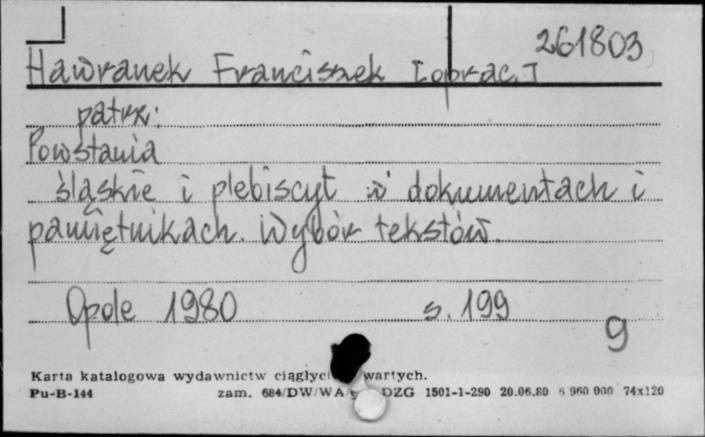 261803
Hawranek Franciszek [oprac.]
patrz:
Powstania
śląskie i plebiscyt w dokumentach i
pamiętnikach. Wybór tekstów.
Opole 1980 s. 199
9
Karta katalogowa wydawnictw wartych.
Pu-B-144 zam. 684/DW/WA DZG 1501-1-290 20.06.80 6 960 000 74x120